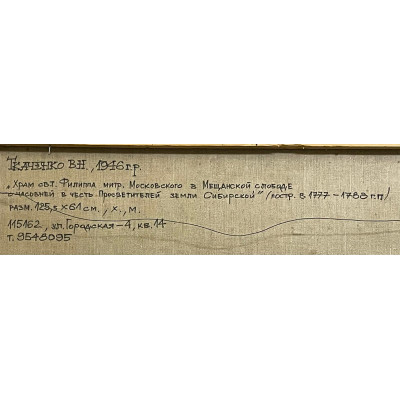 Ткаченко В.Н., 1946 г.р.
„Храм свт. Филиппа митр. Московского в Мещанской слободе
с часовней в честь Просветителей земли Сибирской" /постр. в 1777-1788 г.г/
разм. 125,5 х 61 см., х., м.
115162, ул. Городская-4, кв. 14
т. 9548095